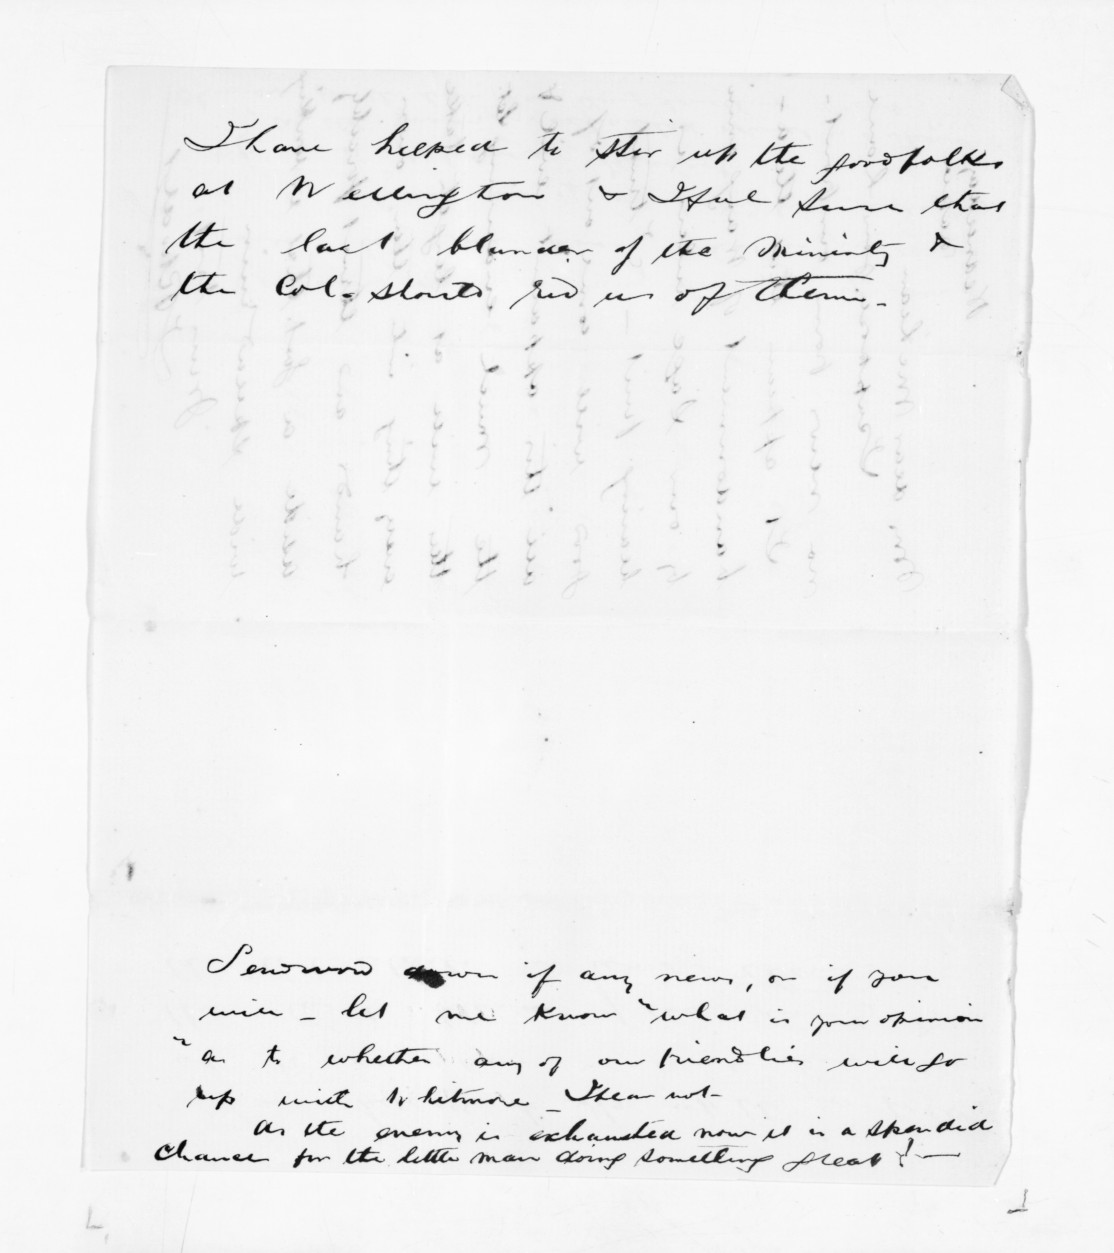 I have helped to stir up the good folks
at Wellington & I feel sure that
the last blunder of the Ministry &
the Col- should rid us of them.
Send word down if any news, or if you
will - let me know "what is your opinion
"as to whether any of our friendlies will go
up with Whitmore - I hear not -
As the enemy is exhausted now it is a spendid
chance for the little man doing something great! -